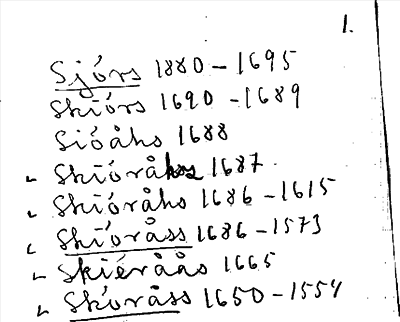 1.
Sjórs 1880 - 1695
Skiórs 1690 - 1689
Sióåhs 1688
Skióråhs 1687.
Skióråhs 1686 - 1615
Skioråss 1686 - 1573
Skiéråås 1665
Skóråss 1650 - 1554